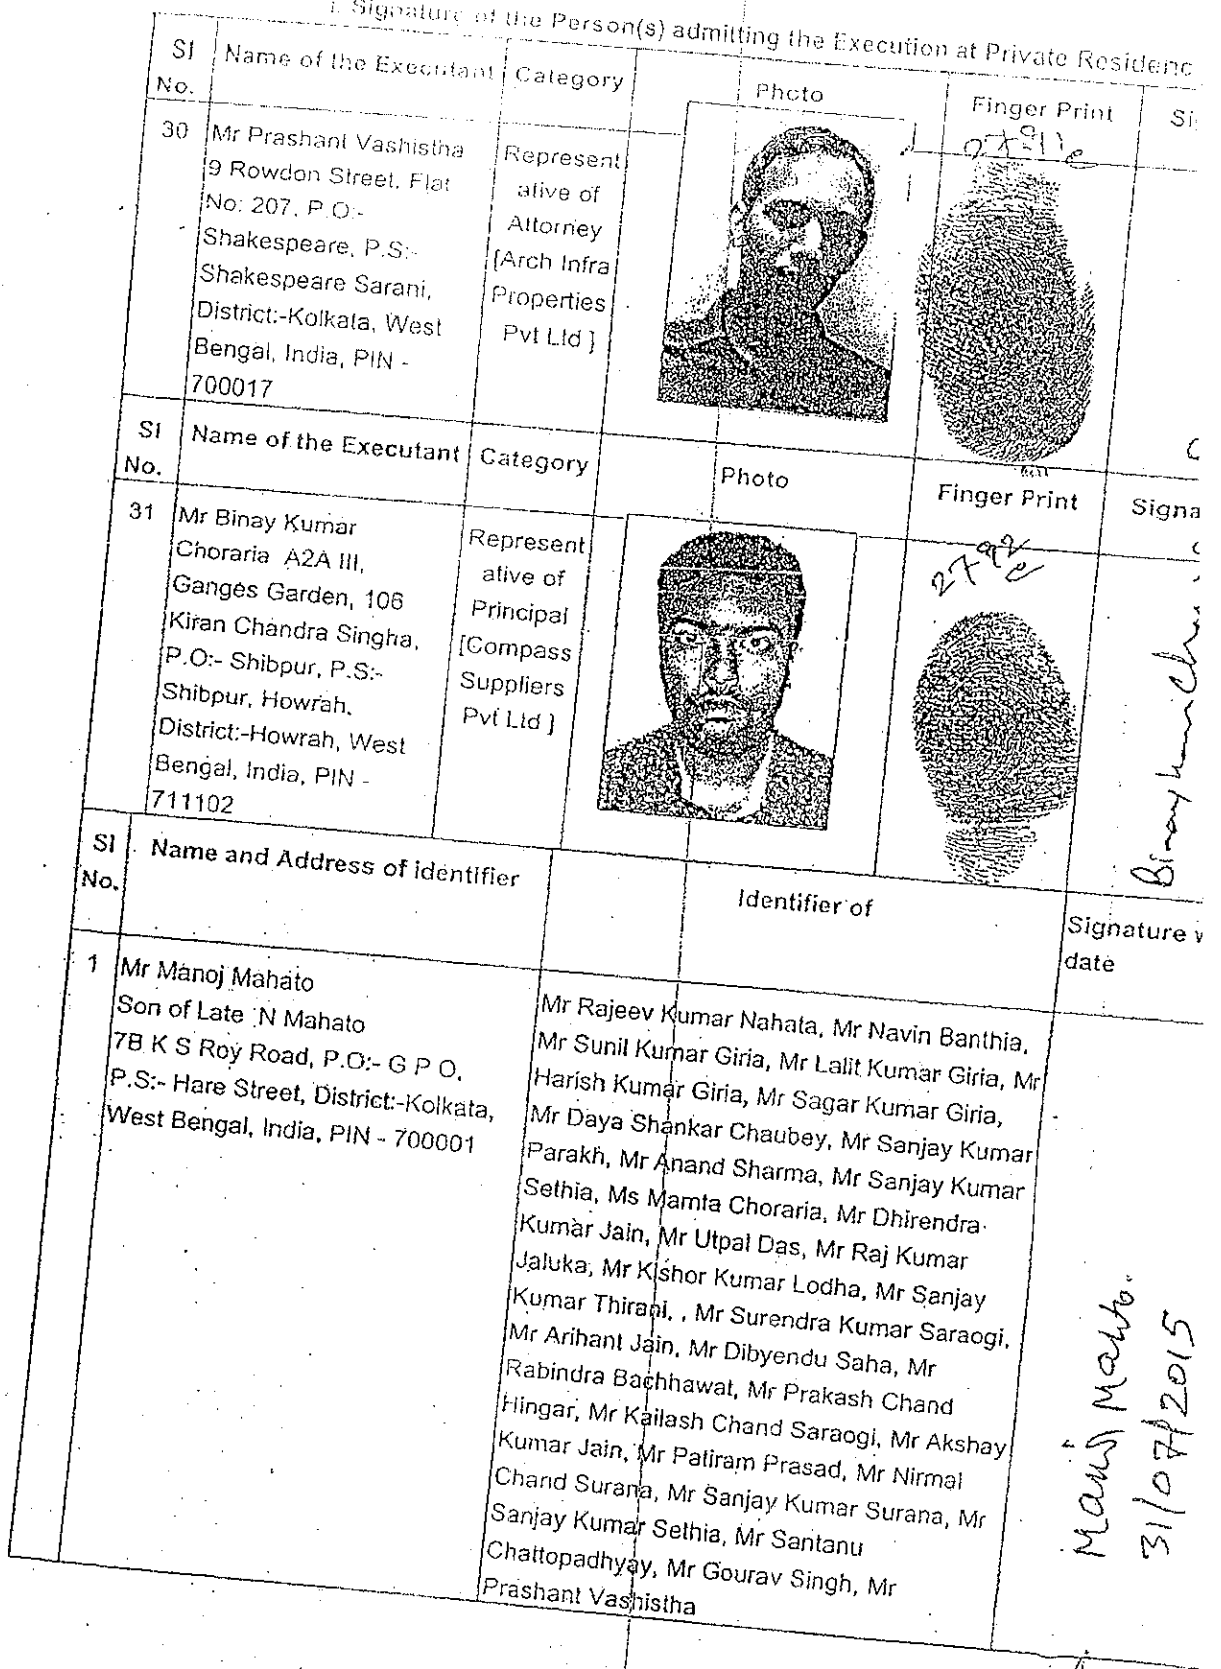 I. Signature of the Person(s) admitting the Execution at Private Residenc
Sl No. Name of the Executant Category Photo Finger Print Si
30 Mr Prashant Vashistha
9 Rowdon Street, Flat
No: 207, P.O:-
Shakespeare, P.S:-
Shakespeare Sarani,
District:-Kolkata, West
Bengal, India, PIN -
700017
Represent
ative of
Attorney
[Arch Infra
Properties
Pvt Ltd ]
Sl No. Name of the Executant Category Photo Finger Print Signa
31 Mr Binay Kumar
Choraria A2A III,
Ganges Garden, 106
Kiran Chandra Singha,
P.O:- Shibpur, P.S:-
Shibpur, Howrah,
District:-Howrah, West
Bengal, India, PIN -
711102
Represent
ative of
Principal
[Compass
Suppliers
Pvt Ltd ]
2792
Sl No. Name and Address of identifier Identifier of Signature w
date
1 Mr Manoj Mahato
Son of Late N Mahato
7B K S Roy Road, P.O:- G P O,
P.S:- Hare Street, District:-Kolkata,
West Bengal, India, PIN - 700001
Mr Rajeev Kumar Nahata, Mr Navin Banthia,
Mr Sunil Kumar Giria, Mr Lalit Kumar Giria, Mr
Harish Kumar Giria, Mr Sagar Kumar Giria,
Mr Daya Shankar Chaubey, Mr Sanjay Kumar
Parakh, Mr Anand Sharma, Mr Sanjay Kumar
Sethia, Ms Mamta Choraria, Mr Dhirendra
Kumar Jain, Mr Utpal Das, Mr Raj Kumar
Jaluka, Mr Kishor Kumar Lodha, Mr Sanjay
Kumar Thirani, , Mr Surendra Kumar Saraogi,
Mr Arihant Jain, Mr Dibyendu Saha, Mr
Rabindra Bachhawat, Mr Prakash Chand
Hingar, Mr Kailash Chand Saraogi, Mr Akshay
Kumar Jain, Mr Patiram Prasad, Mr Nirmal
Chand Surana, Mr Sanjay Kumar Surana, Mr
Sanjay Kumar Sethia, Mr Santanu
Chattopadhyay, Mr Gourav Singh, Mr
Prashant Vashistha
Manoj Mahto.
31/07/2015